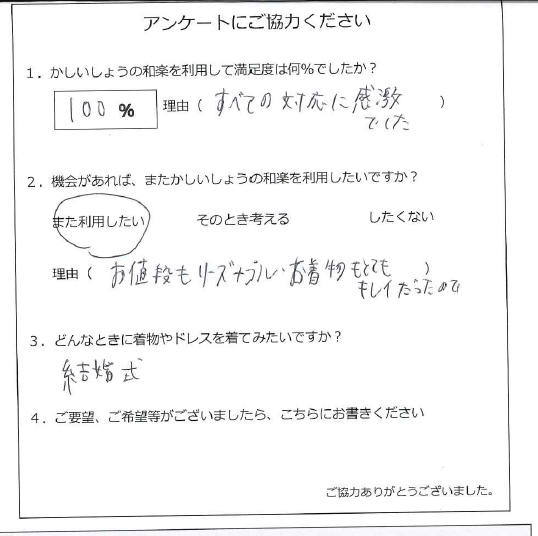 アンケートにご協力ください
1．かしいしょうの和楽を利用して満足度は何％でしたか？
100 % 理由（ すべての対応に感激 ）
でした
2．機会があれば、またかしいしょうの和楽を利用したいですか？
また利用したい そのとき考える したくない
理由（ お値段もリーズナブル、お着物もとても ）
キレイだったので
3．どんなときに着物やドレスを着てみたいですか？
結婚式
4．ご要望、ご希望等がございましたら、こちらにお書きください
ご協力ありがとうございました。